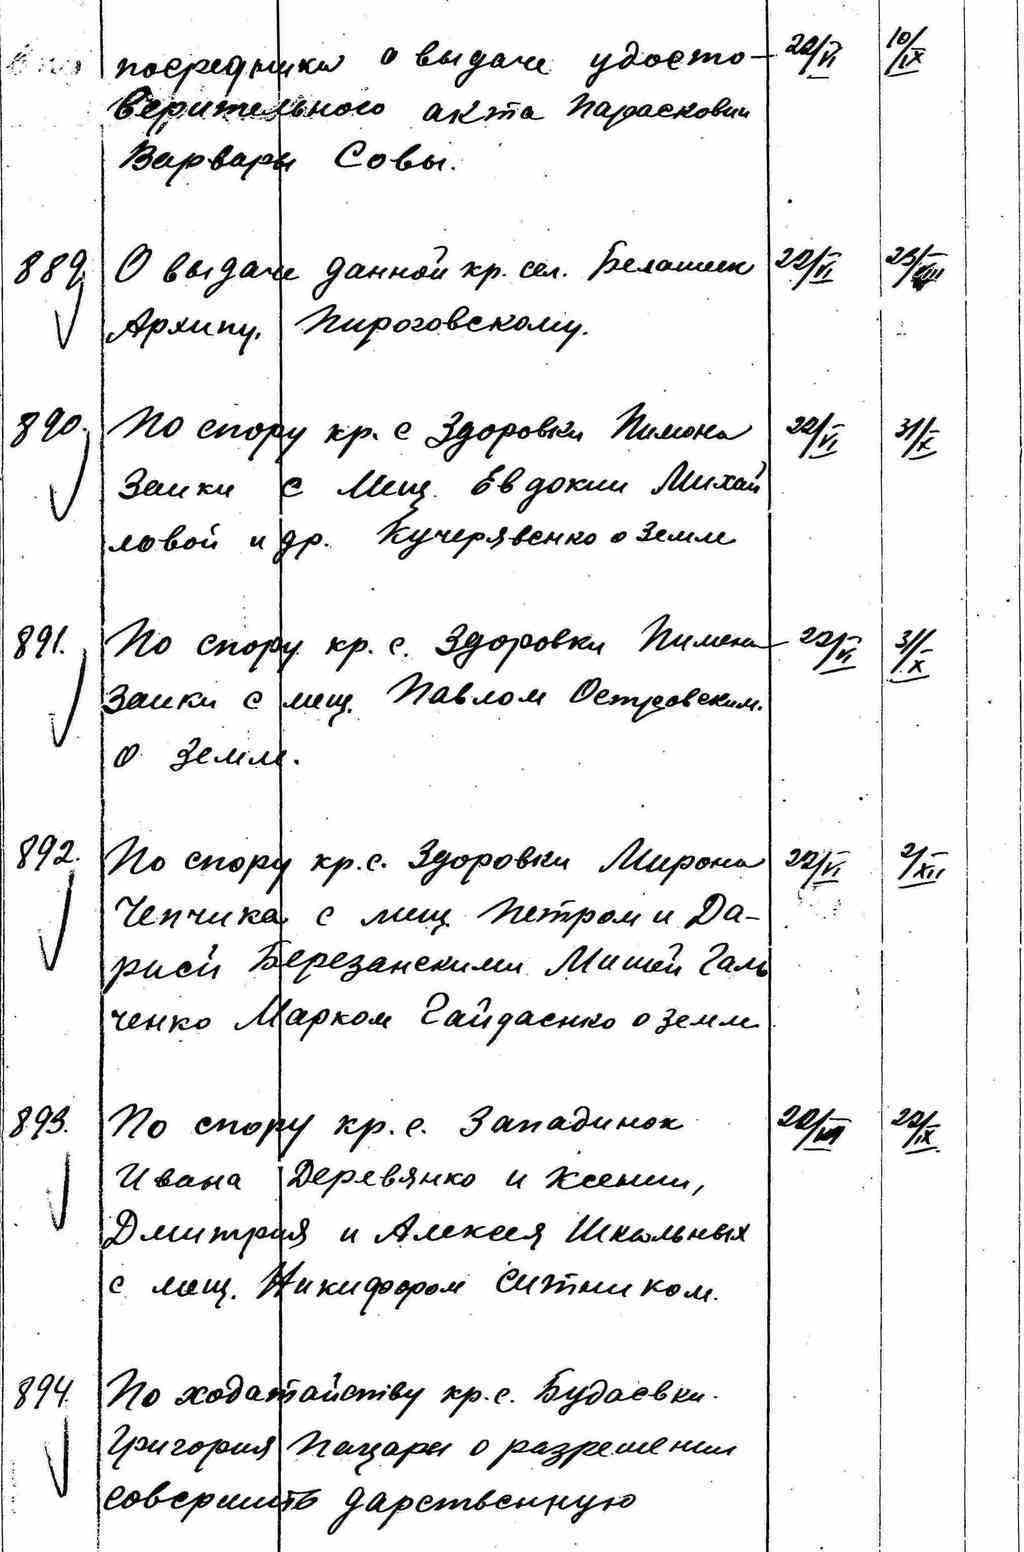 посредника о выдаче удосто- 22/VI 10/IX
верительного акта Парасковии
Варвары Совы.
889. О выдаче данной кр. сел. Белашек 22/VI 23/VIII
Архипу Пироговскому.
890. По спору кр. с Здоровки Пимона 22/VI 31/X
Заики с Мещ. Евдокии Михай
ловой и др. Кучерявенко о земле
891. По спору кр. с. Здоровки Пимена 22/VI 31/X
Заики с мещ. Павлом Островским.
о земле.
892. По спору кр. с. Здоровки Мирона 22/VI 2/XII
Чепчика с мещ. Петром и Да-
рией Березанскими Мишей Галь
ченко Марком Гайдаенко о земле
893. По спору кр. с. Западинок 20/VII 22/IX
Ивана Деревянко и Ксении,
Дмитрия и Алексея Школьных
с мещ. Никифором Ситником.
894. По ходатайству кр. с. Будаевки
Григория Пацары о разрешении
совершить дарственную